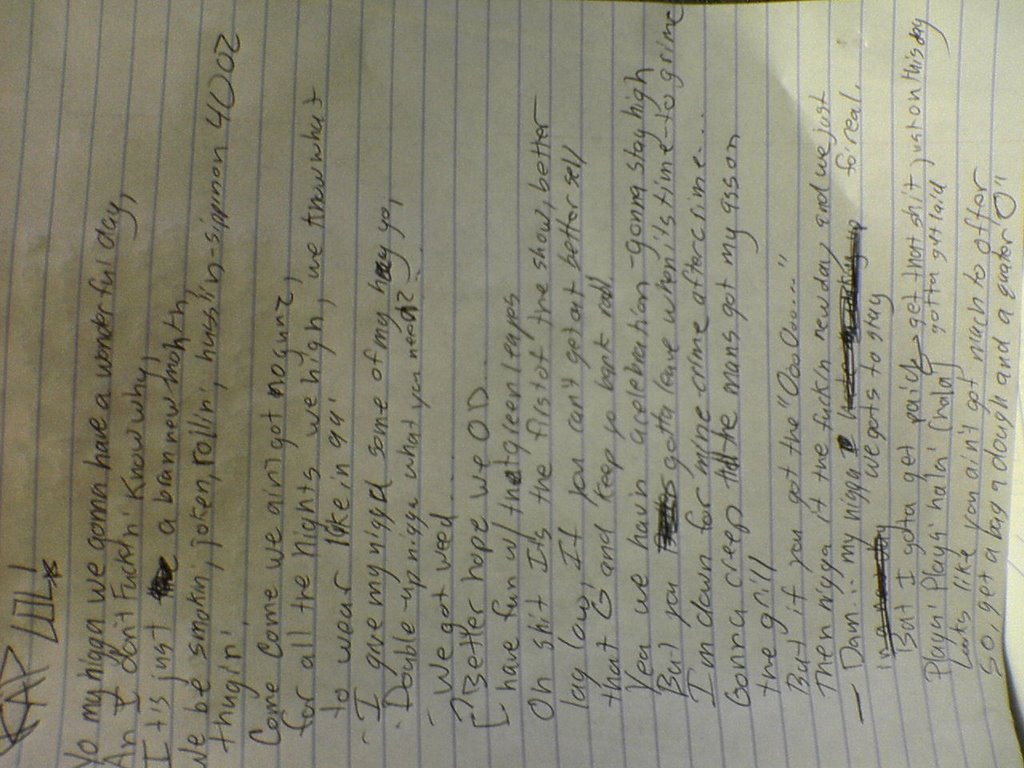 RAP LUL!
Yo my niggan we gonna have a wonderful day,
An I don't Fuckn' Know why,
It is just a bran new month,
We be smokin, joken, rollin', husslin-sippinon 40oz
thuggin'
Come Come we ain't got no gunz,
for all the nights we high, we know what
to wear like in qa'
- I give my nigga some of my hay yo,
- Double-up nigga what you need?
- We got weed....
? Better hope we O.D....
[ have fun w/ that green leaves
Oh shit Its the first of the show, better
lay low, If you can't get out better sell
that G and keep yo bank roll
Yea we havin acelebration-gonna stay high
But you gotta leave when its time-to grime
I'm down for mine-crime after crime...
Gonna creep the mans got my ass on
the grill
But if you got the "OooOoo....."
Then nigga it the fuckn newday and we just
- Dam... my nigga for real.
we gots to stay
But I gota get paid - get that shit just on this day
Playa' Playa' hala' (hala) gotta get laid
Looks like you ain't got much to offer
So, get a bag a dough and a quator "O"